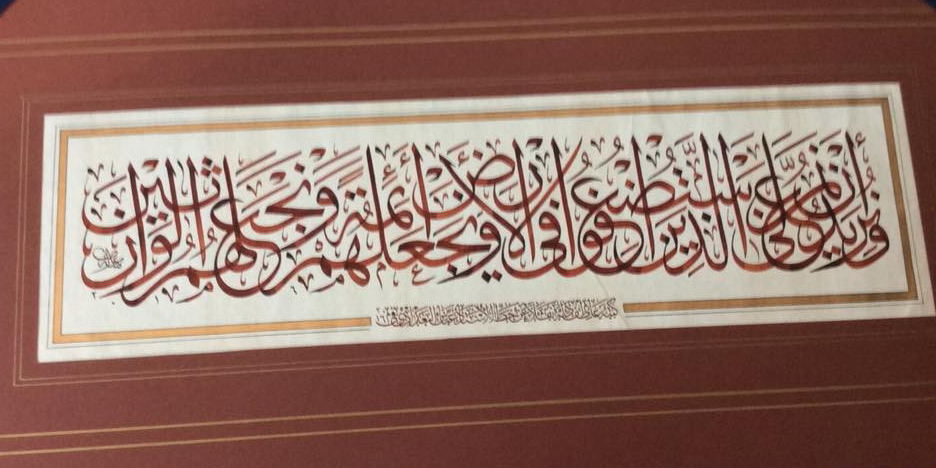 ونريد أن نمن على الذين استضعفوا في الأرض ونجعلهم أئمة ونجعلهم الوارثين